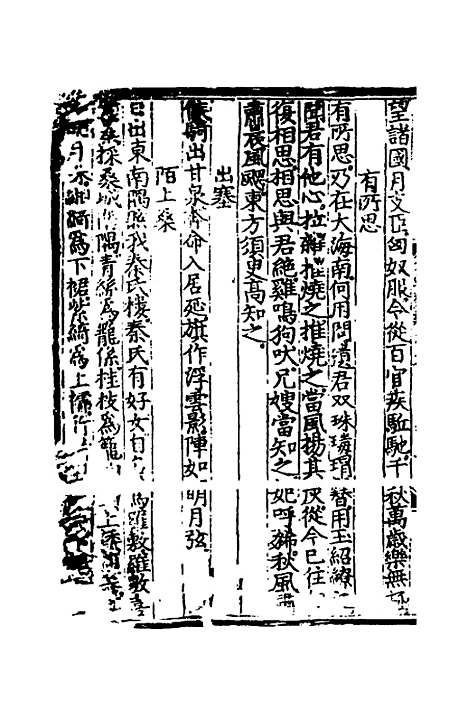 望諸國月支臣匈奴服令從百官疾驅馳千秋萬歲樂無
有所思
有所思乃在大海南何用問遺君双珠瑇瑁簪用玉紹繚
聞君有他心拉雜摧燒之摧燒之當風揚其灰從今已往
復相思相思與君絕雞鳴狗吠兄嫂當知之妃呼豨秋風
肅晨風颸東方須臾高知之
出塞
候騎出甘泉奔命入居延旗作浮雲影陣如明月弦
陌上桑
日出東南隅照我秦氏樓秦氏有好女自為羅敷羅敷喜
採桑城南隅青絲為籠係桂枝為籠
月緗綺為下裙紫綺為上襦行